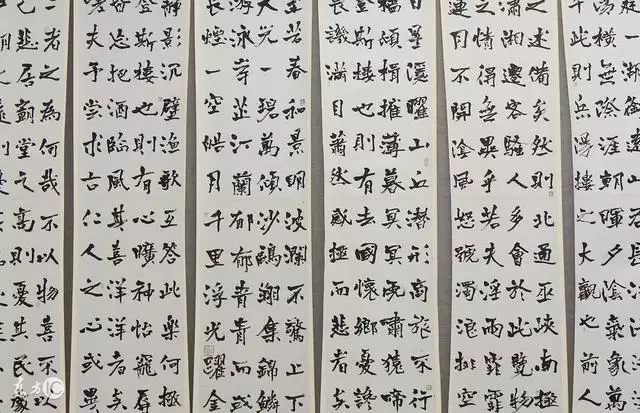 湯橫無際涯朝暉夕陰氣象萬
千此則岳陽樓之大觀也前人
之述備矣然則北通巫峽南極
瀟湘遷客騷人多會於此覽物
之情得無異乎若夫淫雨霏霏
連月不開陰風怒號濁浪排空
星隱曜山岳潛形商旅不行
檣傾楫摧薄暮冥冥虎嘯猿啼
登斯樓也則有去國懷鄉憂讒
畏譏滿目蕭然感極而悲者矣
至若春和景明波瀾不驚上下
天光一碧萬頃沙鷗翔集錦鱗
游泳岸芷汀蘭郁郁青青而或
長煙一空皓月千里浮光躍金
靜影沉璧漁歌互答此樂何極
登斯樓也則有心曠神怡寵辱
忘把酒臨風其喜洋洋者矣
夫予嘗求古仁人之心或異
二者之為何哉不以物喜不以
己悲居廟堂之高則憂其民
东方IC